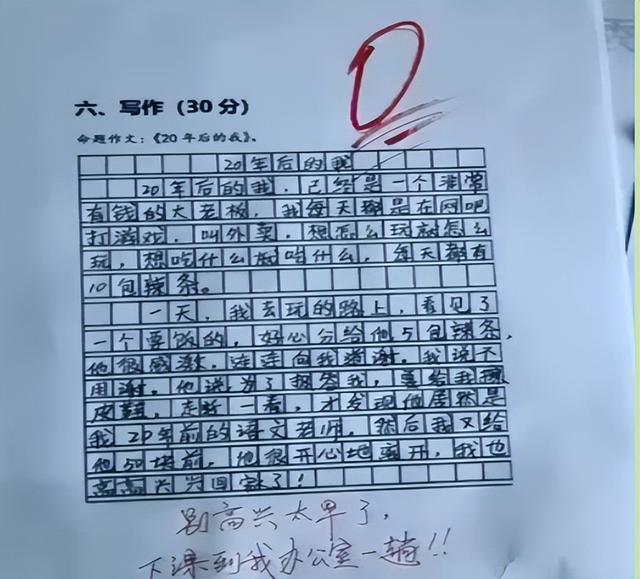 0
六、写作（30分）
命题作文：《20年后的我》。
20年后的我
20年后的我，已经是一个非常
有钱的大老板，我每天都是在网吧
打游戏，叫外卖，想怎么玩就怎么
玩，想吃什么就吃什么，每天都有
10包辣条。
一天，我去玩的路上，看见了
一个要饭的，好心分给他5包辣条，
他很感激，连连向我道谢。我说不
用谢。他说为了报答我，要给我擦
皮鞋，走近一看，才发现他居然是
我20年前的语文老师，然后我又给
他50块前，他很开心地离开，我也
高高兴兴回家了！
别高兴太早了，
下课到我办公室一趟!!